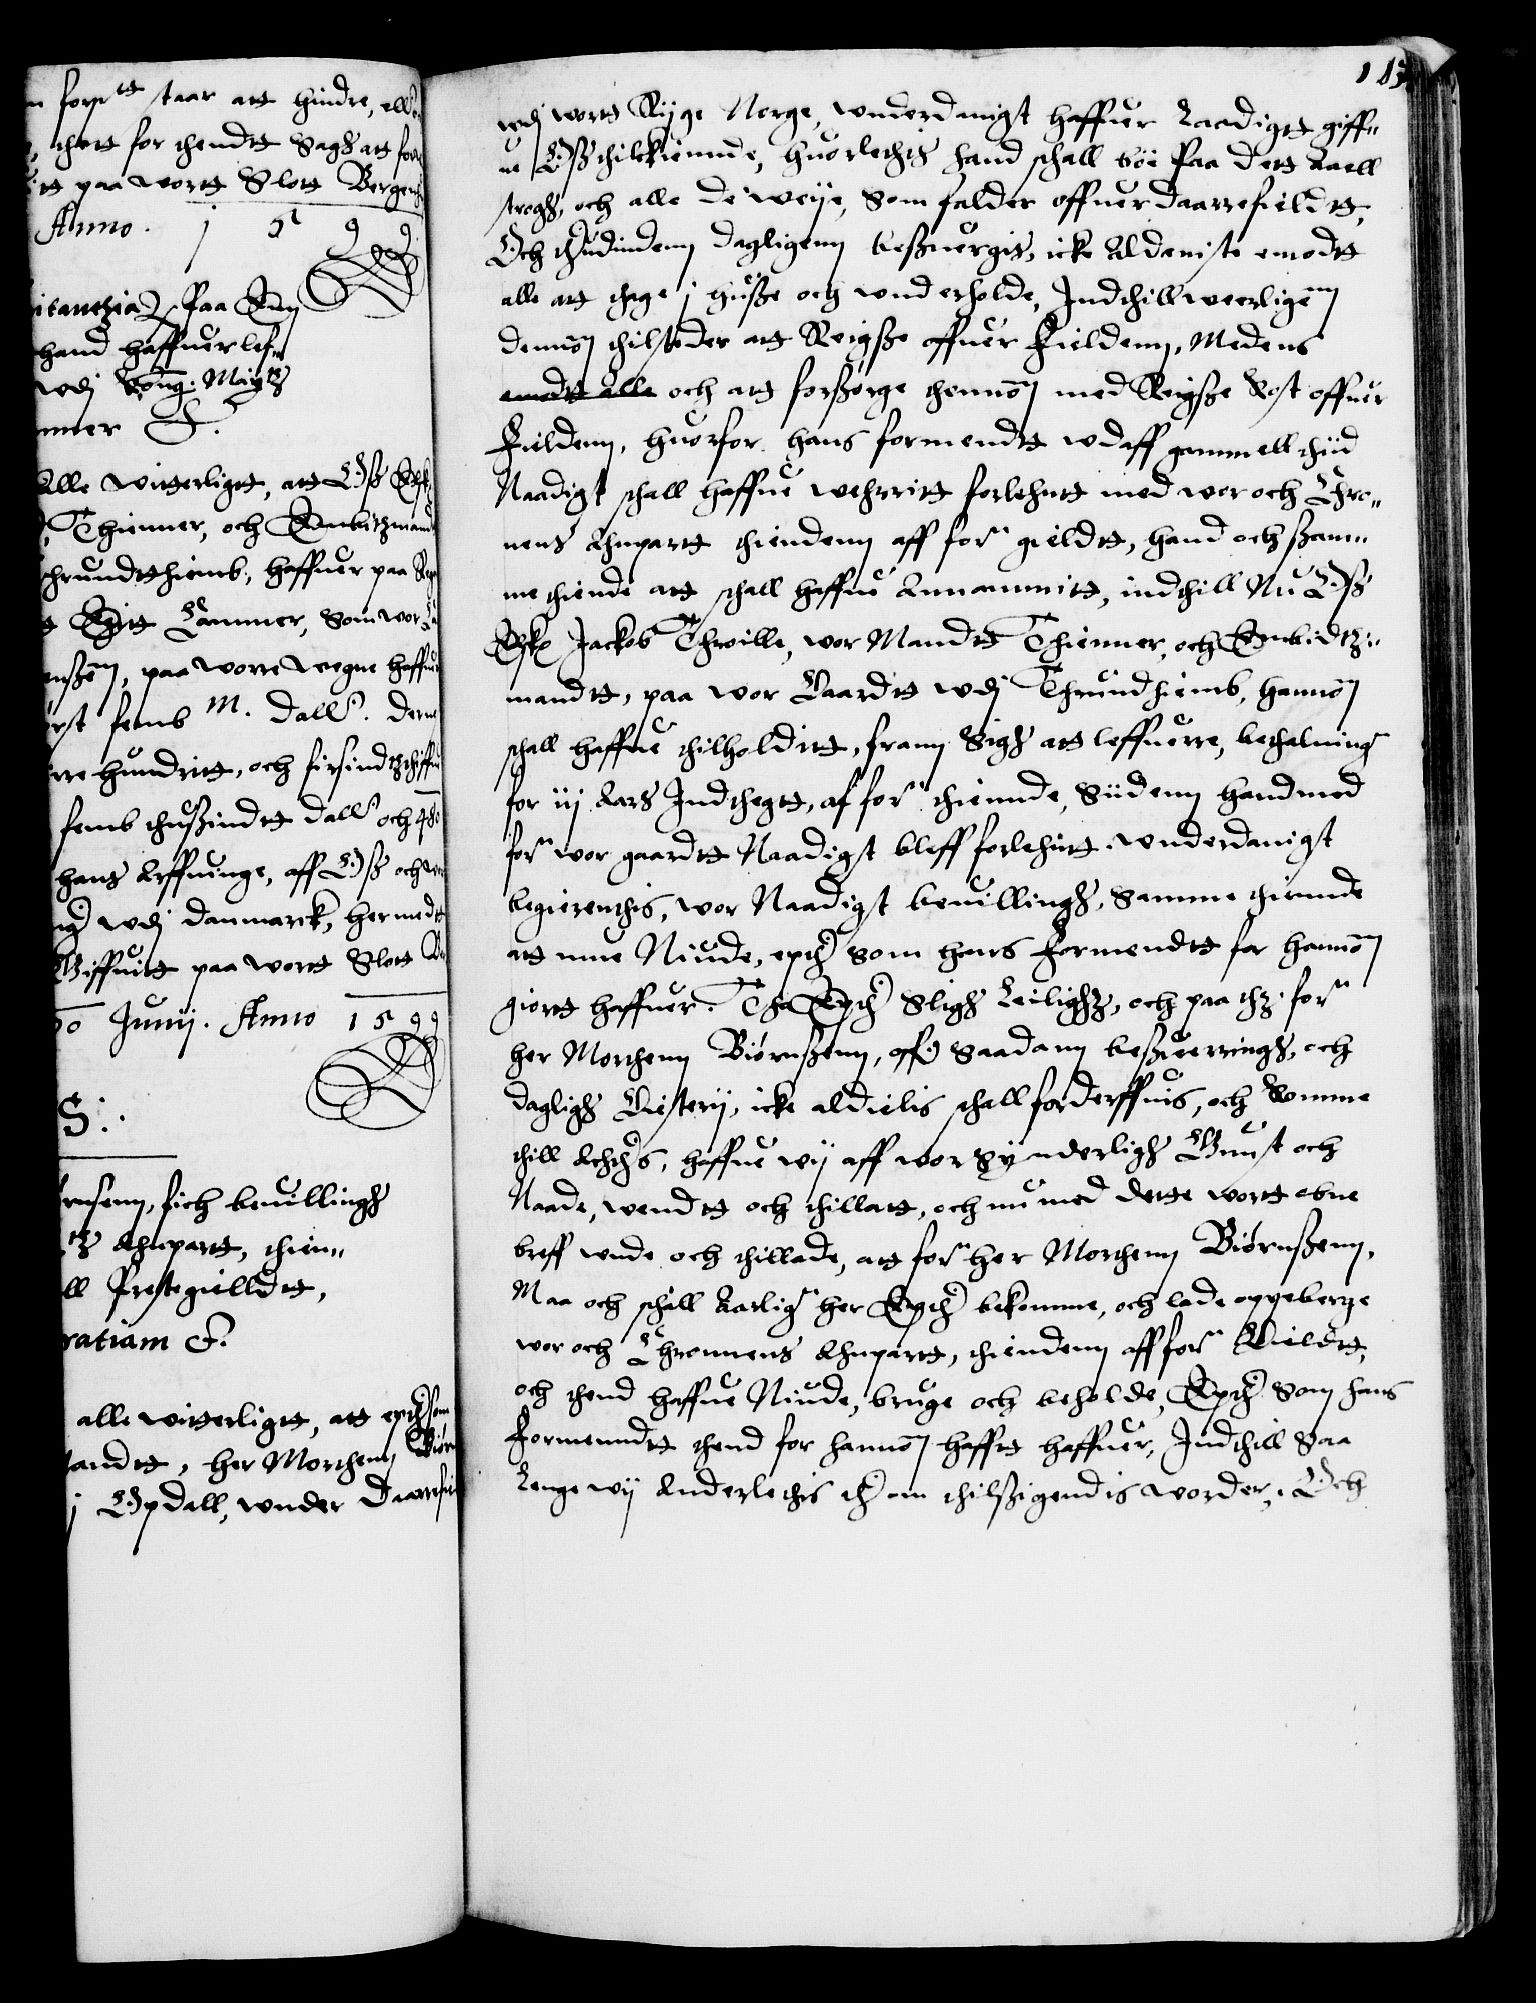 forsᵗᵗ staar att hindre, ell
thett for thendt Sagh att
paa wortt Slott Bergenh
Anno. 1 5 9 9
itanthia) Paa En
hand haffuer lef
wdj Kong: Maytz
nner &.
Alle witterligtt, att Oß Elsk
Thienner, och Embitzmand
thrundthiemb, haffuer paa
Cammer, Som wor
nßen, paa worre wegne haffue
rst femb M. dall. derne
rre hundritt, och firsindtz
femb thußindt dall och 480
hans Arffuinge, aff Oß och
wdj danmarck, hermedt
Giffuitt paa wortt Slott
Junij. Anno 1599
S:.
rnsenn, fich beuillingh
tz Anpartt, thien„
ll Prestegielldtt,
ratiam &.
alle witterligtt, att epther som
andtt, her Morthenn Biørn
j Opdall, wnder Daarefi
145
wdj wortt Rijge Norge, wnderdanigt haffuer Laadigtt giff„
ue Oß thilkiennde, huorledis hand schall boe Paa dett Aaell
strogh, och alle de weije, Som falder offuer daarrefieldtt,
Och thudindenn dagligenn beßuergis, icke Aldeniste emodtt
alle att thage j huße och wnderholde, Indthill weerligenn
dennom thilsteder att Reigße offuer Fieldenn, Medens
emodtt alle och att forßørge thennom med Reigße Kost offuer
Fieldenn, huorfor hans formendtt wdaff gammell thiid
Naadigt schall haffue wehrritt forlehntt med wor och Chro„
nens Anpartt thiendenn aff forⁿ gieldtt, hand och ßam„
me thiende att schall haffue Annammitt, indthill Nu Oß
Elsk Jackob Throille, wor Mandtt Thienner, och Embidtz:„
mandtt, paa wor Gaardtt wdj Thrundhiemb, hannom
schall haffue thilholditt, frann Sigh att leffuerre, bethalning
for iij Aars Indthegtt, af forⁿ thiennde, Siidenn hand med
forⁿ wor gaardtt Naadigt bleff forlehntt. wnderdanigt
begierenthis, wor Naadigt beuillingh, Samme thiennde
att mue Niude, epther som hans Formendtt for hannom
giortt haffuer. Tha Epther Sligh Leilighz, och paa thz. forⁿ
her Morthenn Biørnßenn, aff Saadann beßuerringh, och
dagligh Giesterij, icke aldielis schall forderffuis, och Komme
thill Achters, haffue wij aff wor Synderligh Gunst och
Naade, wendtt och thillatt, och nu med dette wortt obne
breff wnde och thillade, att forⁿ her Morthenn Biørnßenn,
Maa och schall Aarlig her Epther bekomme, och lade oppeberge
wor och Chronnens Anpartt, thiendenn aff forⁿ Gieldtt,
och thend haffue Niude, bruge och beholde, Epther Som hans
Formenndtt thend for hannom hafftt haffuer, Indthill Saa
Lenge wij Anderledis ther om thilßigendis worder,. Och